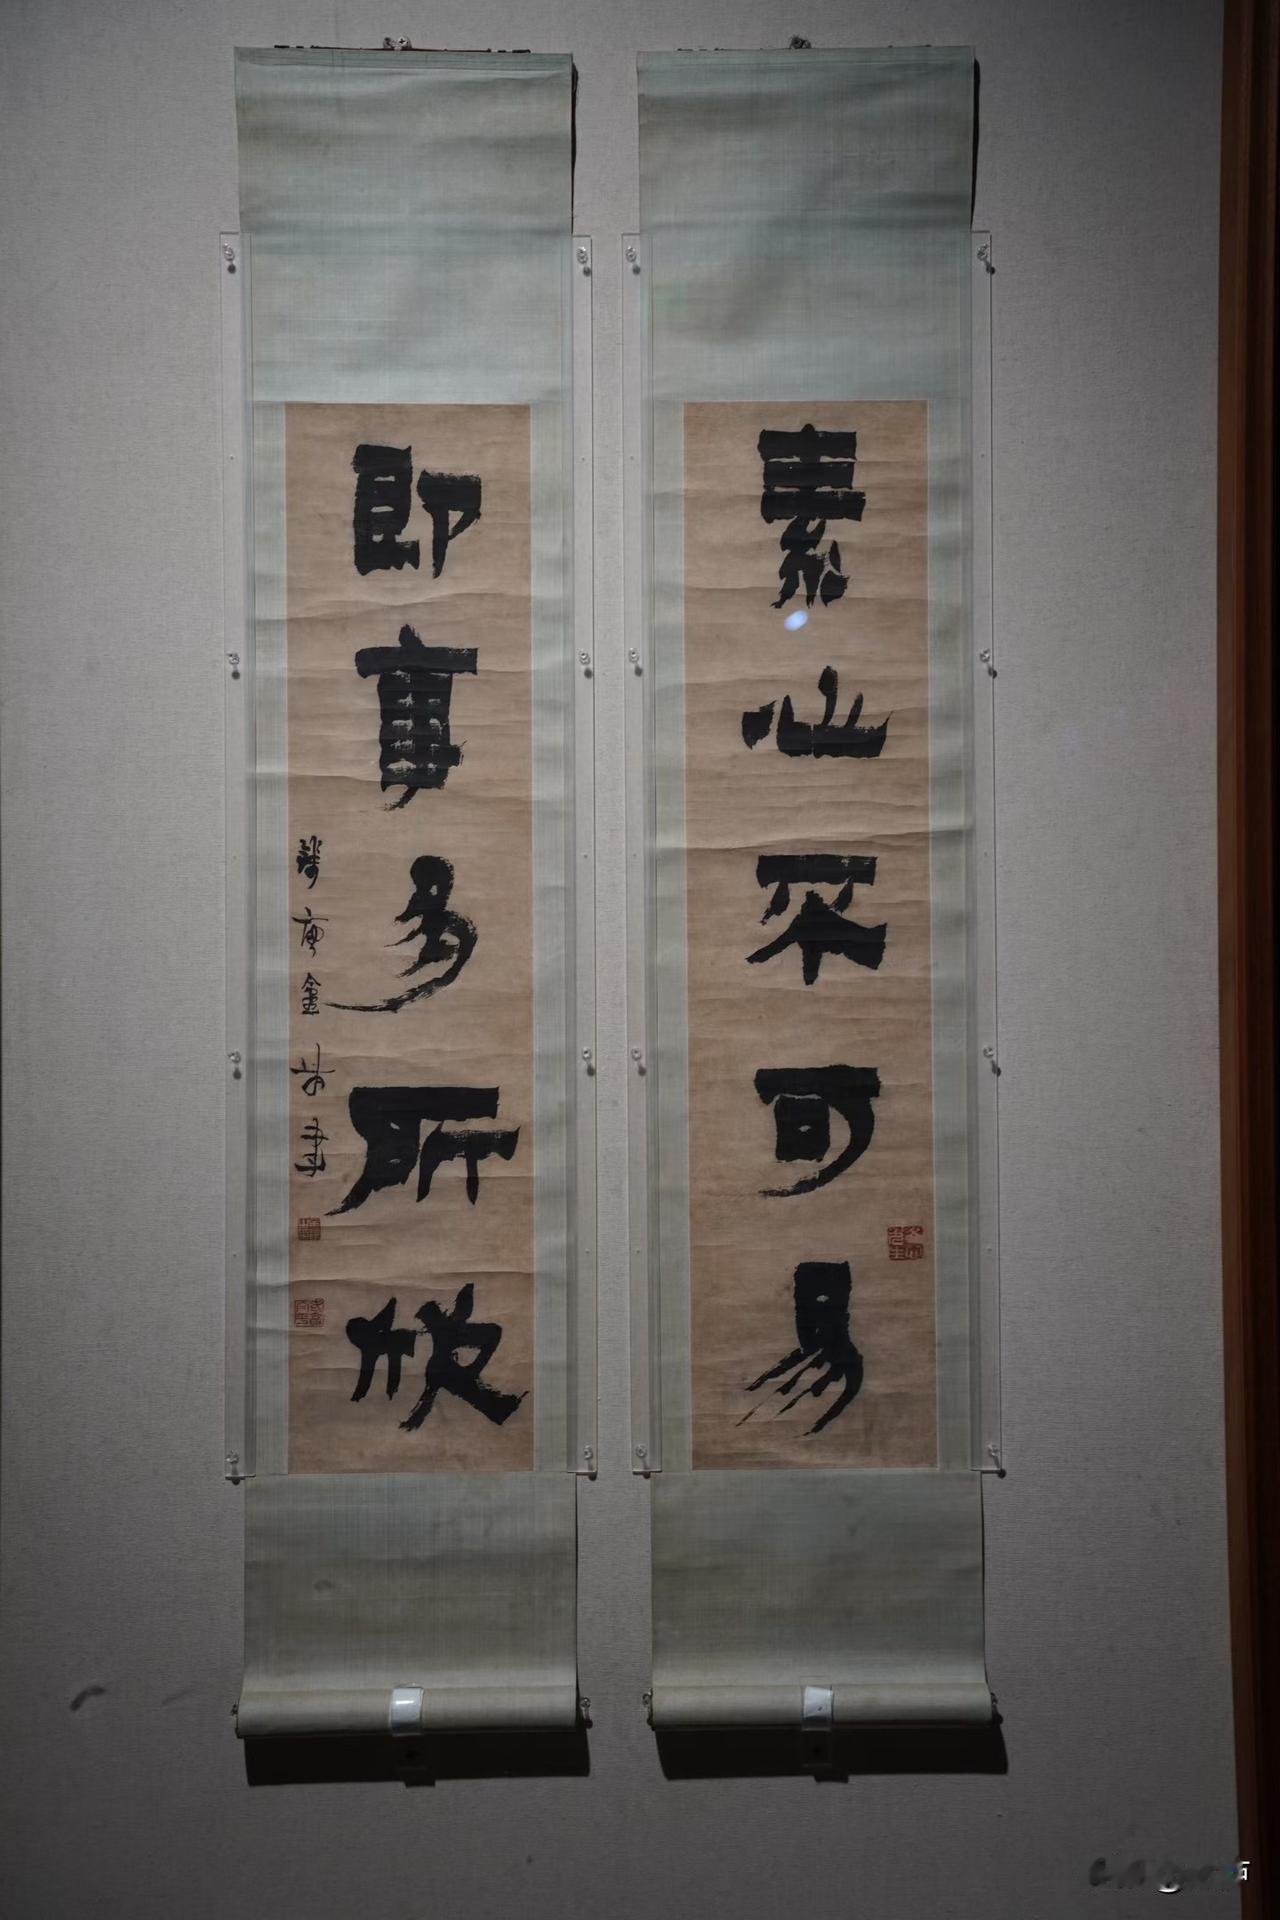 素心不可易
即事多所欣
錢唐金農書